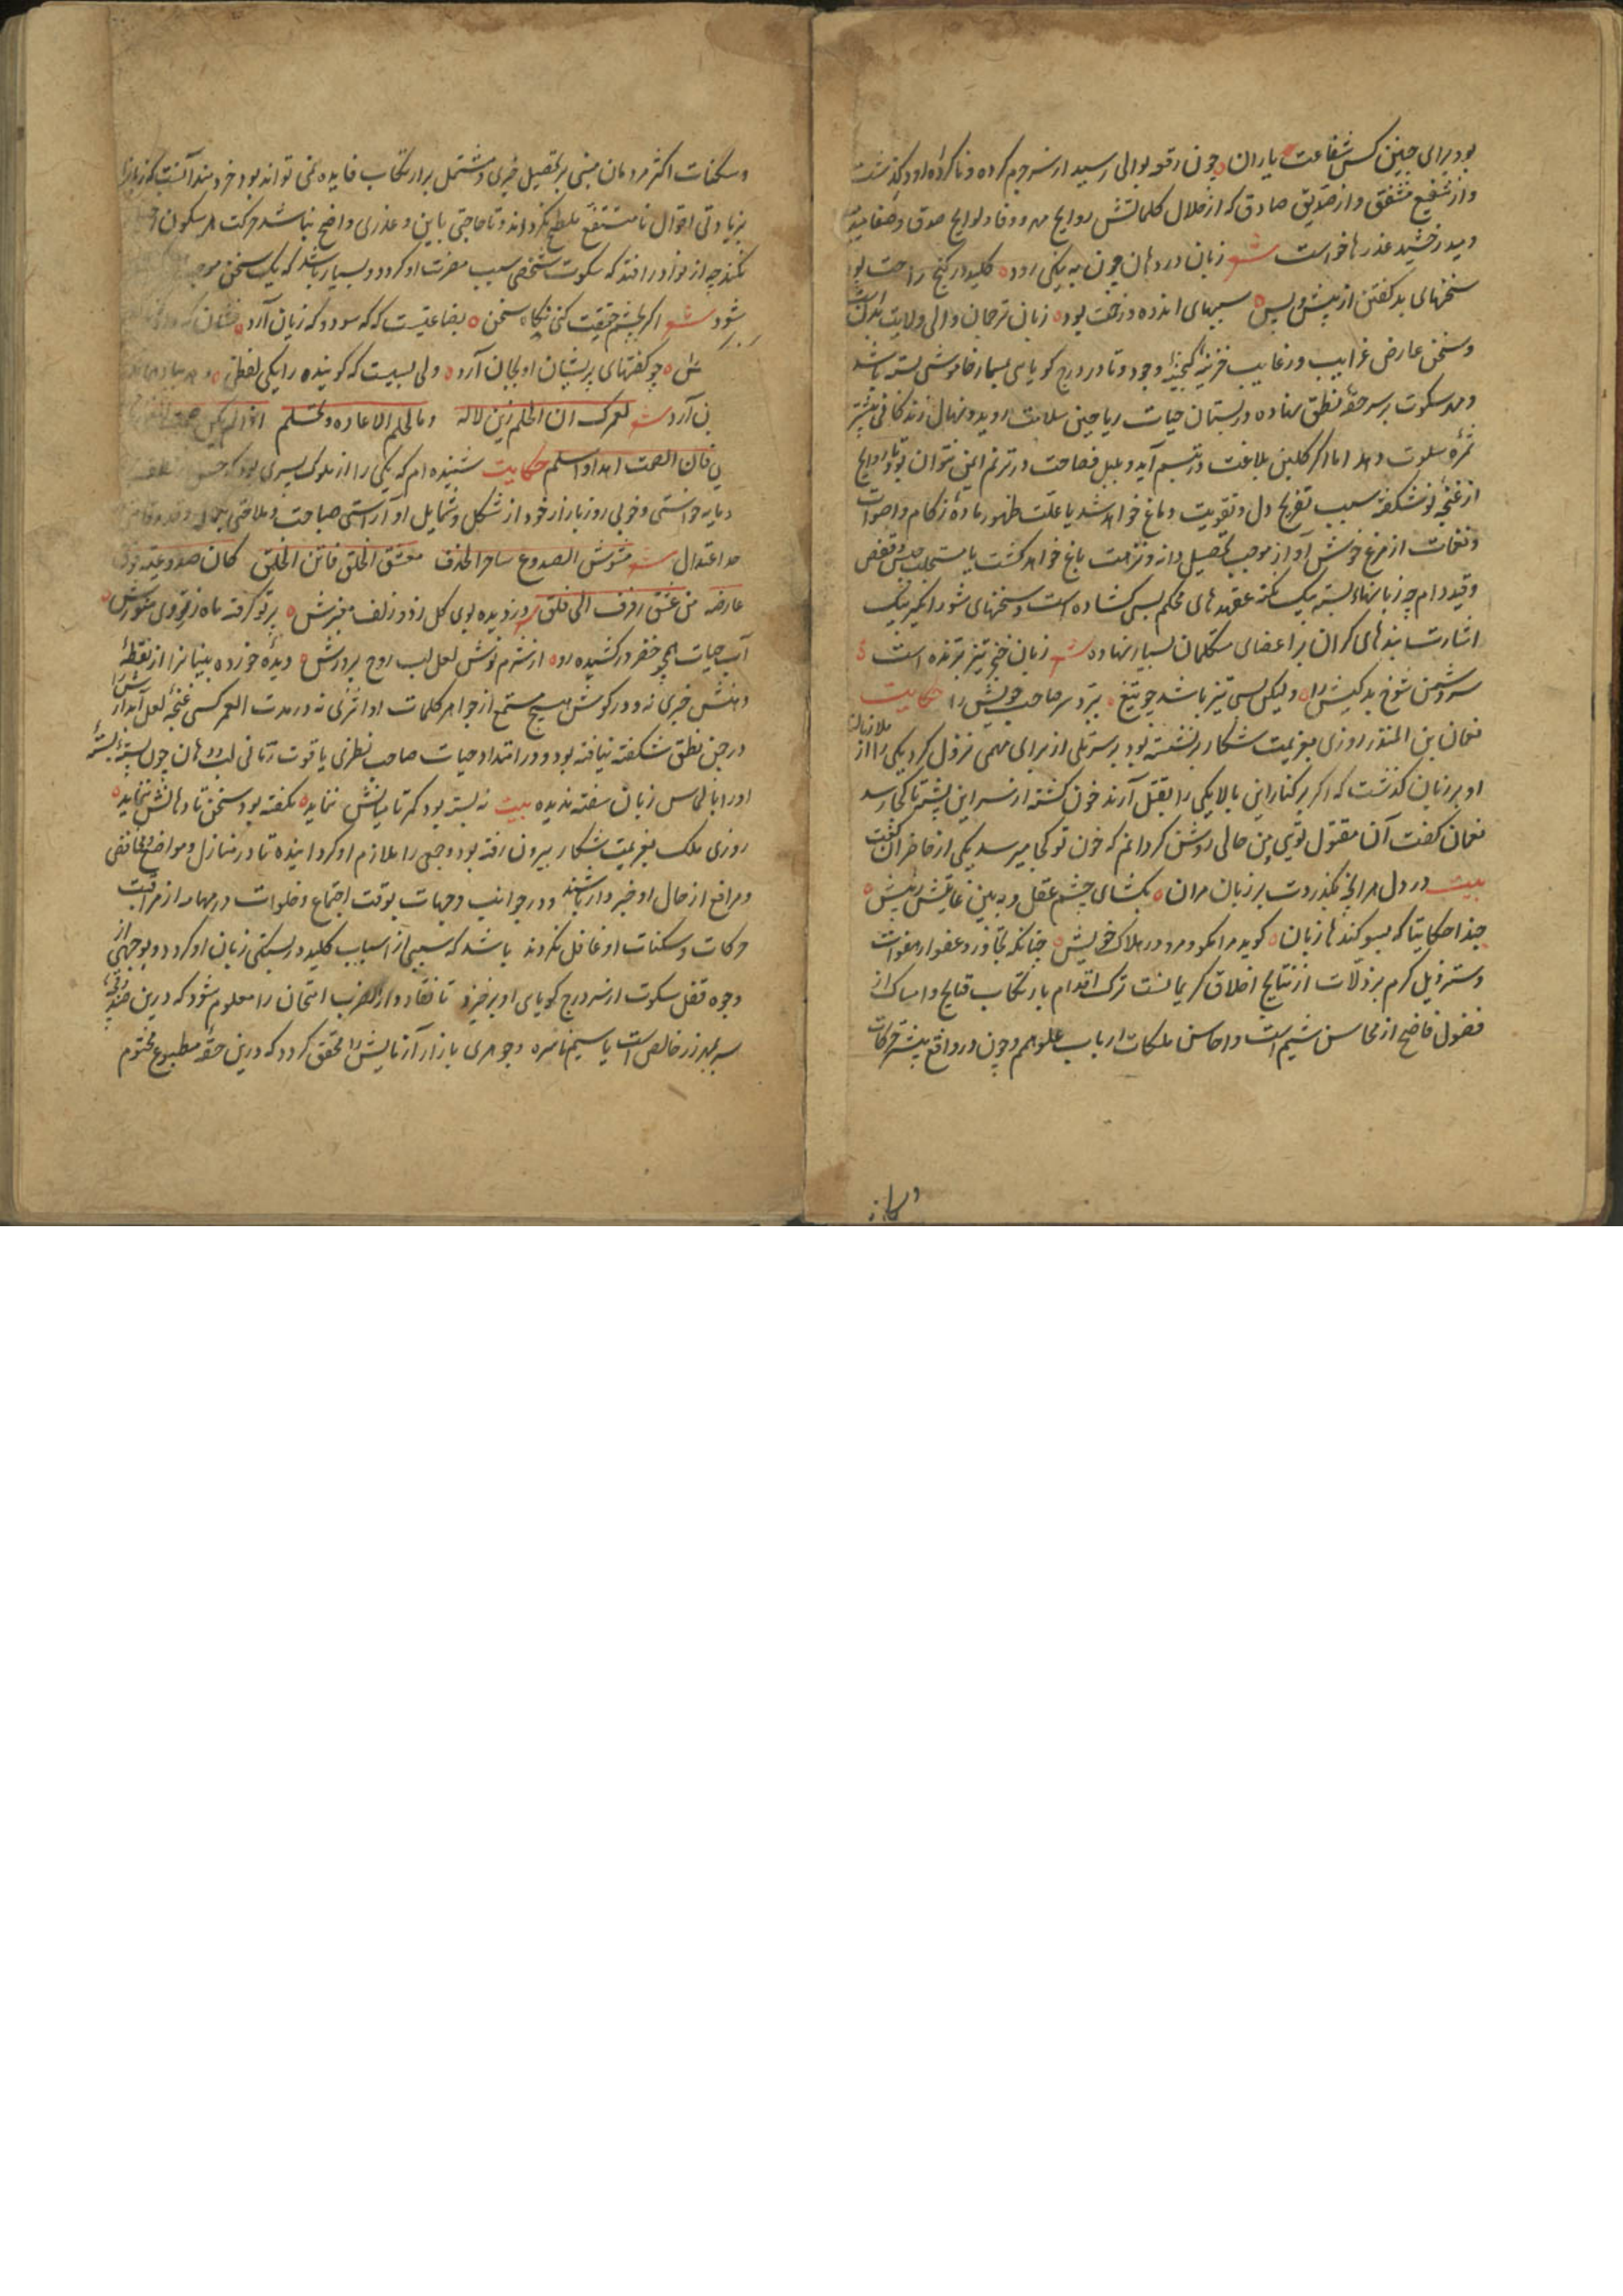 بود برای جبین کس شفاعت یاران چون رقعه بوالی رسید از سر جرم کرده و ناکرده او درگذشت
و از شفیع مشفق و از صدیق صادق که از خلال کلماتش روایح مهر و وفا و لوایح صدق و صفا میدمید
و میدرخشید عذرها خواست شعر زبان در دهان چون به نیکی رود کلید در گنج راحت بود
سخنهای بد گفتن از پیش و پس سببهای اندوه و زحمت بود زبان ترجمان والی ولایت بدنست
و سخن عارض غرایب و رغایب خزینه گنجینه وجود و تا در درج گویایی بمسمار خاموشی بسته باشد
و مهر سکوت بر سر حقه نطق نهاده در بستان حیات ریاحین سلامت روید و نهال زندگانی بیشتر
ثمره سلوت دهد اما اگر گلبن بلاغت در تبسم آید و بلبل فصاحت در ترنم ایمن نتوان بود تا روایح
از غنچه نوشکفته سبب تفریح دل و تقویت دماغ خواهد شد یا علت ظهور ماده زکام و اصوات
و نغمات از مرغ خوش آواز موجب تحصیل دانه و نزهت باغ خواهد گشت یا مستجلب حبس و قفص
و قید دام چه زبانهاء بسته بیک نکته عقدهای محکم بسی گشاده است و سخنهای شورانگیز بیک
اشارت بندهای گران بر اعضای متکلمان بسیار نهاده شعر زبان خنجر تیز برنده است
سر دشمن شوخ بدکیش را ولیکن بسی تیز باشد چو تیغ ببرد سر صاحب خویش را حکایت
نعمان بن المنذر روزی بعزیمت شکار برنشسته بود بر سر تلی از برای مهمی نزول کرد یکی را از ملازمان
او بر زبان گذشت که اگر بر کنار این بالا یکی را بقتل آرند خون کشته از سر این پشته تا کجا رسد
نعمان گفت آن مقتول تویی من حالی روشن گردانم که خون تو کجا میرسد یکی از حاضران گفت
بیت در دل هر آنچه بگذردت بر زبان مران بگشای چشم عقل و ببین عاقبتش پیش
چند احکایتا که بسوگندها زبان گوید مرا مگو و مرو در هلاک خویش چنانکه تجاوز و عفو از هفوات
و ستر ذیل کرم بر زلات از نتایج اخلاق کریمانست ترک اقدام بارتکاب قبایح و امساک از
فضول فاضح از محاسن شیم است و احاسن ملکات ارباب علو همم و چون در واقع بیشتر حرکات
و سکنات اکثر مردمان مبنی بر تحصیل خیری و مشتمل بر ارتکاب فایده نمی تواند بود خردمند آنست که زبانرا
بزیادتی اقوال نامنتفع ملطخ نگرداند و تا حاجتی باین و عذری واضح نباشد حرکت بر سکون
نکند چه از نوادر افتد که سکوت شخصی سبب مضرت او گردد و بسیار باشد که یک سخن
شود شعر اگر بچشم حقیقت کنی نگاه سخن بضاعتیست که گه سود و گه زیان آرد
چو گفتهای پریشان او بجان آرد ولی بسیست که گوینده را بیکی لفظی
ن آرد شعر لعمرک ان الحلم زین لاهله وما الحلم الا عاده وتحلم اذا لم یکن صمت الفتی
ی فان الصمت اهدی واسلم حکایت شنیده ام که یکی را از ملوک پسری بود که حسن
خواستی و خوبی روز بازار خود از شکل و شمایل او آراستی صباحت و ملاحتی
حد اعتدال شعر مشوش الصدوع ساحر الحدق معشق الخلق فاتن الخلق کان صدوعیه
عارضه من عشق ارزق الی فلق دزدیده بوی گل ز دو زلف معنبرش پرتو گرفته ماه ز روی منورش
آب حیات همچو خضر درکشیده رو از شرم نوش لعل لب روح پرورش دیده خرده بینانرا از نقطه
دهنش خبری نه و در گوش هیچ مستمع از جواهر کلمات او اثری نه در مدت العمر کسی غنچه لعل آبدارش را
در چمن نطق شکفته نیافته بود و در امتداد حیات صاحب نظری یاقوت رمانی لب و دهان چون پسته بسته
او را بالماس زبان سفته ندیده بیت نه بسته بود کمر تا میانش ننماید نگفته بود سخن تا دهانش ننماید
روزی ملک بعزیمت شکار بیرون رفته بود و جمعی را ملازم او گردانیده تا در منازل و مواضع موافقی
و مرافع از حال او خبردار باشند و در جوانب و جهات بوقت اجتماع و خلوات در مهامه از مراقبت
حرکات و سکنات او غافل نگردند باشد که سببی از اسباب کلید در بستگی زبان او گردد و بوجهی از
وجوه قفل سکوت از سر درج گویای او برخیزد تا نقاد دار الضرب امتحان را معلوم شود که درین صندوقچه
سر بمهر زر خالص است یا سیم ناسره و جوهری بازار آزمایش را محقق گردد که درین حقه مطبوع مختوم